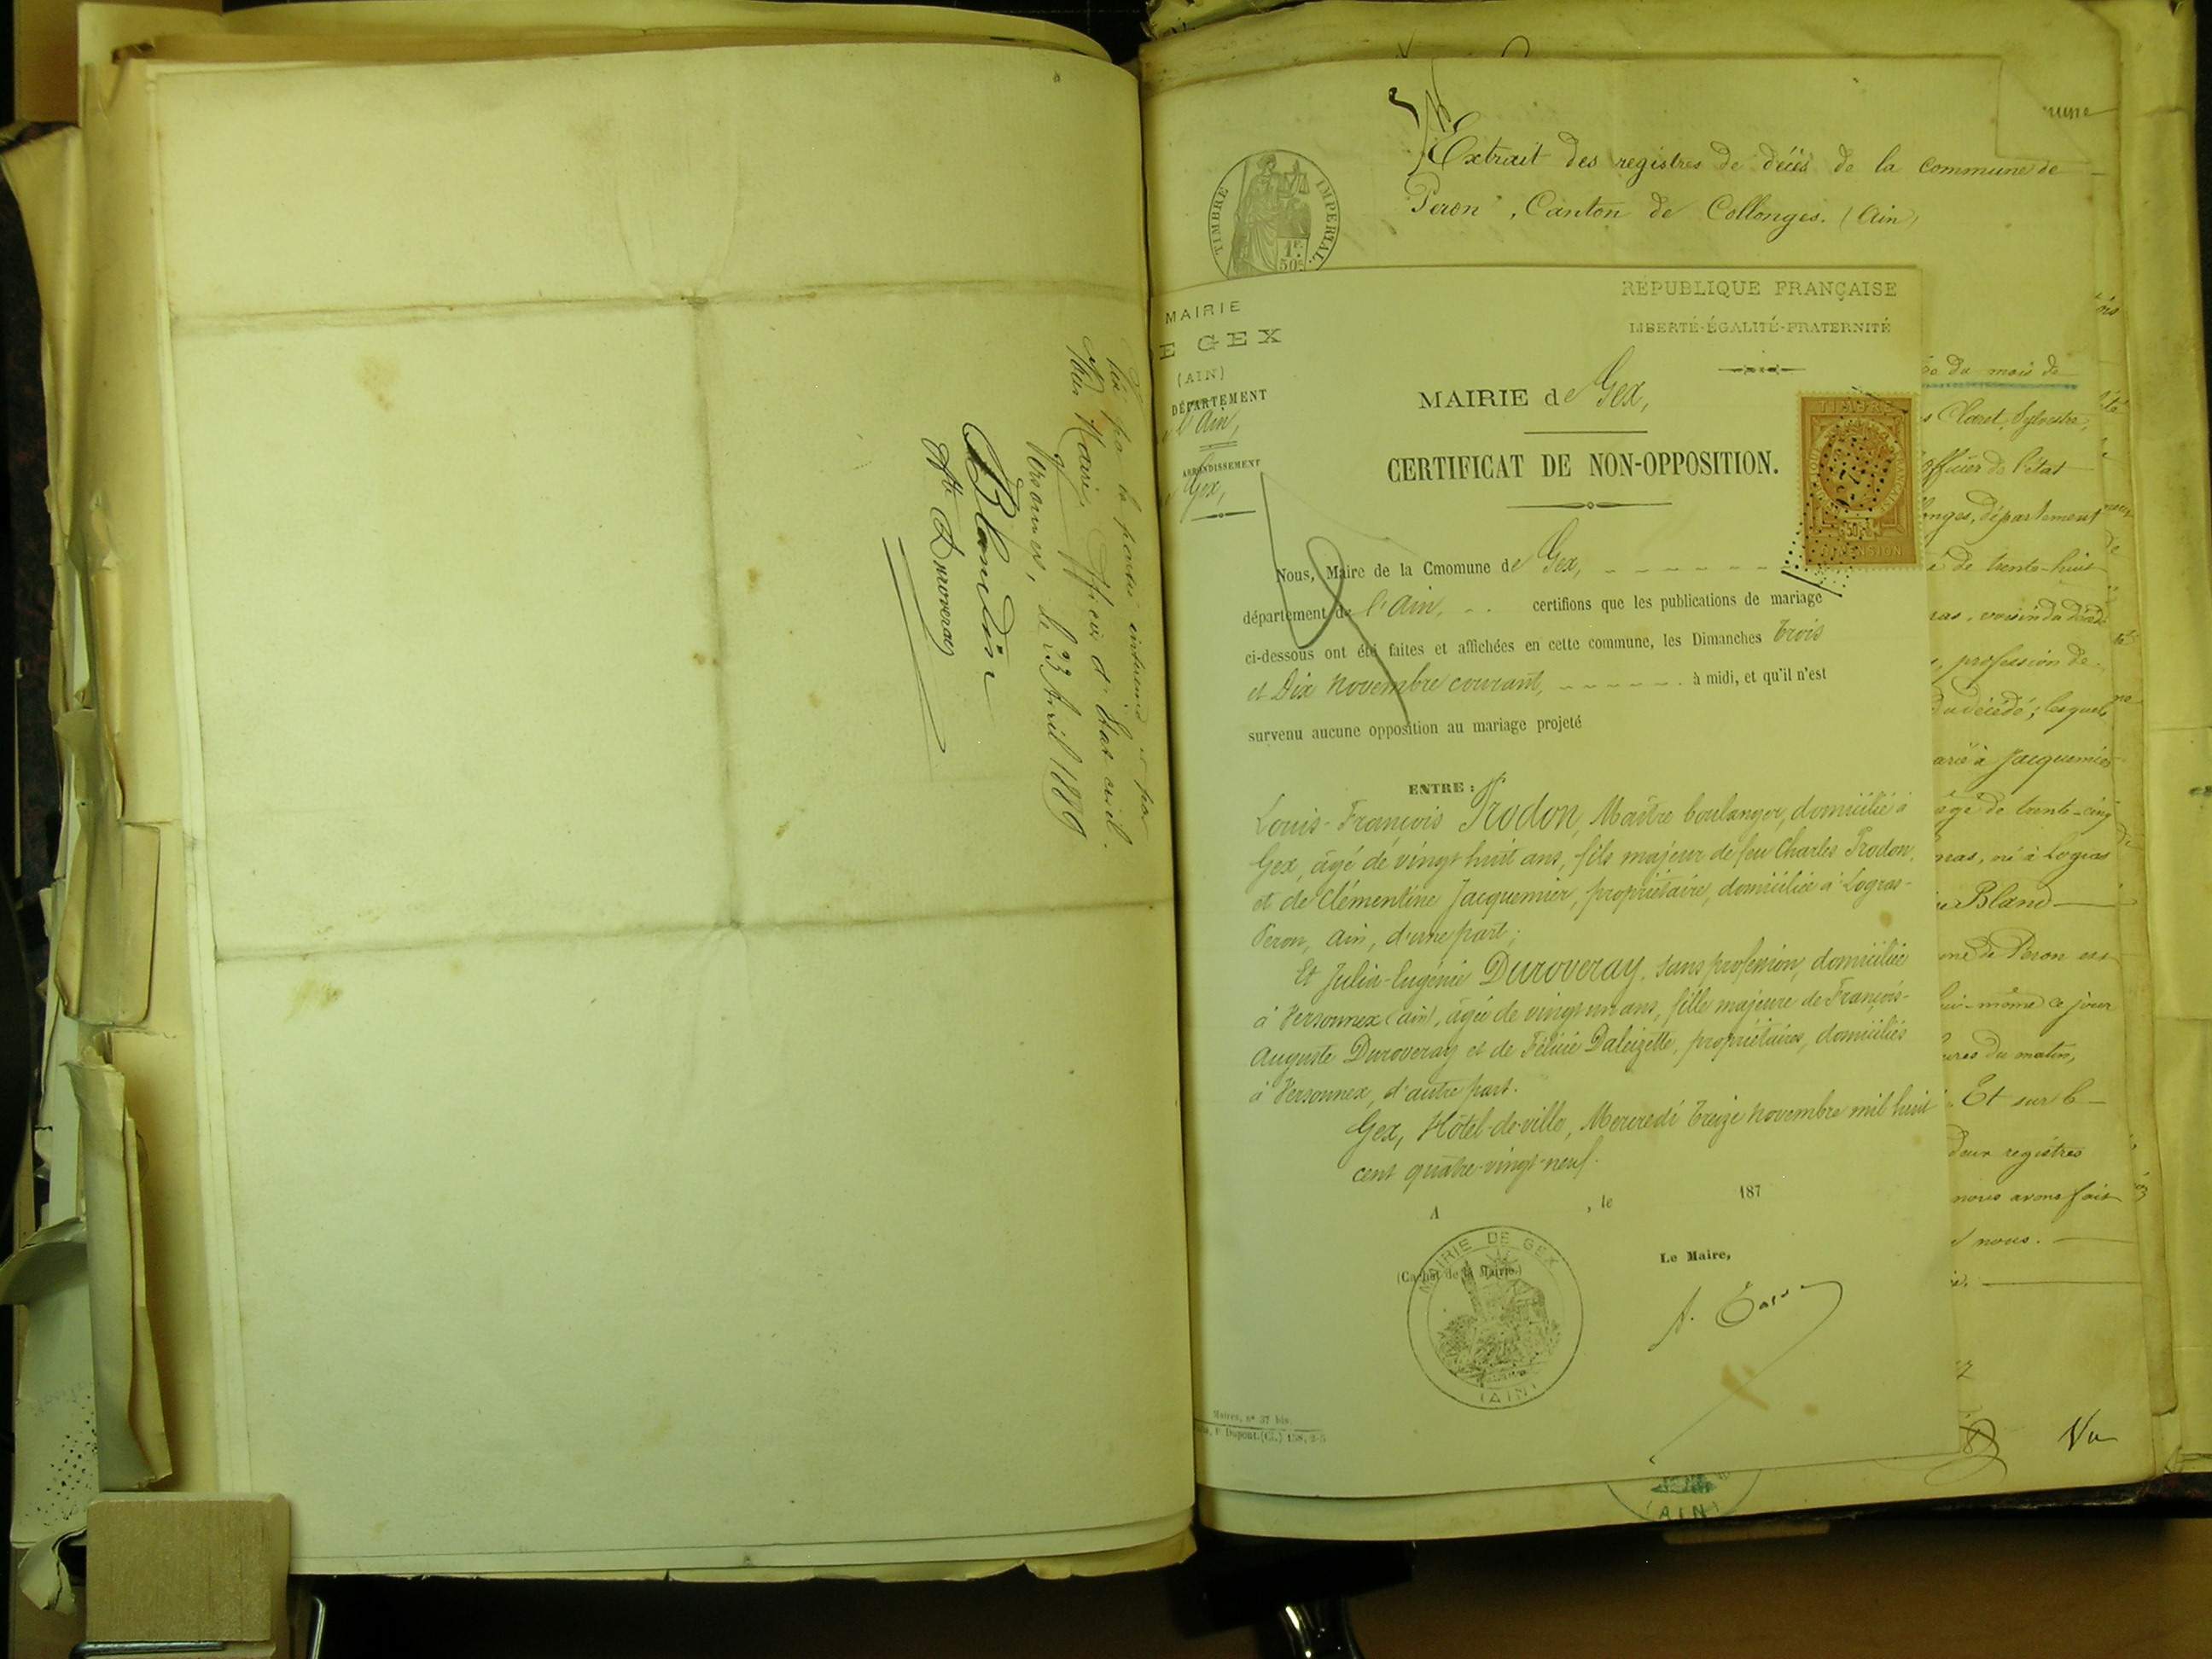 Vu par la partie intéressée et par
Nous Maire, Officier d'État civil.
Versonnex, le 23 Avril 1889
Blandin
Duroveray
Extrait des registres de décès de la commune de
Peron, Canton de Collonges. (Ain)
TIMBRE IMPERIAL
1F.
50c
MAIRIE
E GEX
(AIN)
DÉPARTEMENT
l'Ain,
ARRONDISSEMENT
Gex,
RÉPUBLIQUE FRANÇAISE
LIBERTÉ-ÉGALITÉ-FRATERNITÉ
MAIRIE de Gex,
CERTIFICAT DE NON-OPPOSITION.
TIMBRE
DIMENSION
Nous, Maire de la Cmomune de Gex,
département de l'Ain, certifions que les publications de mariage
ci-dessous ont été faites et affichées en cette commune, les Dimanches trois
et Dix novembre courant, à midi, et qu'il n'est
survenu aucune opposition au mariage projeté
ENTRE :
Louis-François Prodon, Maître boulanger, domicilié à
Gex, âgé de vingt huit ans, fils majeur de feu Charles Prodon,
et de Clémentine Jacquemier, propriétaire, domiciliée à Logras-
Peron, Ain, d'une part;
Et Julie-Eugénie Duroveray, sans profession, domiciliée
à Versonnex (ain), âgée de vingt un ans, fille majeure de François-
Auguste Duroveray et de Félicie Daleizette, propriétaires, domiciliés
à Versonnex, d'autre part.
Gex, Hôtel-de-ville, Mercredi treize novembre mil huit
cent quatre-vingt-neuf.
A , le 187
Le Maire,
(Cachet de la Mairie.)
MAIRIE DE GEX
(AIN)
Mairies, n° 37 bis
P. Dupont.
du mois de
Claret, Sylvestre,
officier de l'état
onges, département
é de trente-huit
ras, voisin du décédé
, profession de
du décédé; lesquels
arié à Jacquemier
âgé de trente-cinq
gras, né à Logras
Bland
une de Péron est
lui-même ce jour
ures du matin,
. Et sur le
deux registres
nous avons fait
nous.
Vu
(AIN)